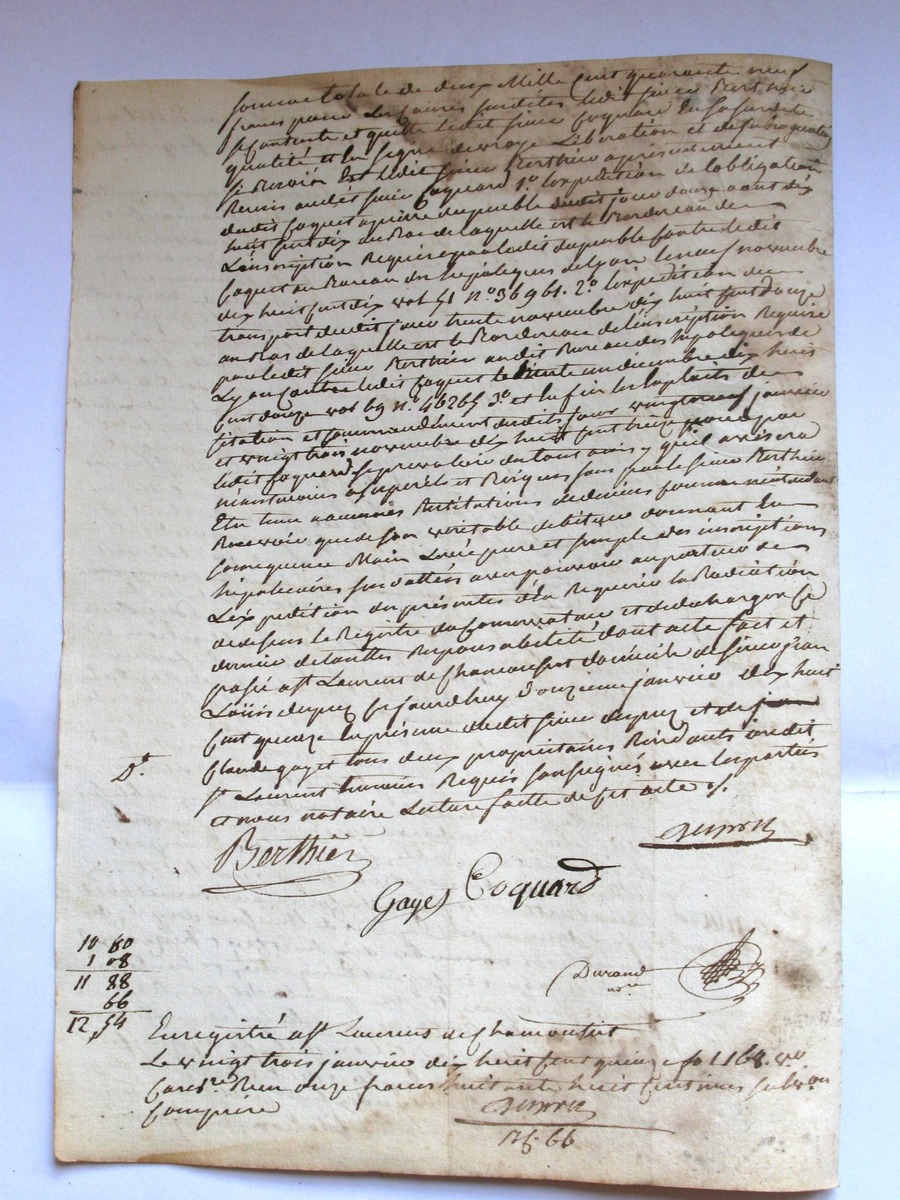 somme totale de deux Mille cent quarante neuf
francs pour les causes susdites ledit sieur Berthier
se contente et quitte ledit sieur Coquard en sa susdite
qualité et en signe de vraye Libération et de subrogation
ledit sieur Berthier a présentement
Remis audit sieur Coquard 1.º L'expedition de l'obligation
dudit Coquet dudit jour douze aout dix
huit cent dix au Bas de laquelle est le Bordereau de
L'inscription Requise contre ledit
Coquet au Bureau des hypoteques de Lyon le neuf novembre
dix huit cent dix vol 51 nº 36961. 2º L'expedition du
transport dudit jour trente novembre dix huit cent douze
au Bas de laquelle est le Bordereau de l'inscription Requise
par ledit sieur Berthier audit Bureau des hypoteques de
Lyon Contre ledit Coquet le décembre dix huit
cent douze vol 69 nº 46265 3º et enfin les Exploits de
citation et commandement desdits jours vingt neuf janvier
et vingt trois novembre dix huit cent treize pour par
ledit Coquard se prevaloir du tout ainsi qu'il avisera
néanmoins à ses périls et Risques sans que le sieur Berthier
Etre tenu à aucunes Restitutions de deniers
Recevoir que de son véritable debiteur donnant en
Consequence Main Levée pure et simple des inscriptions
hipotécaires avec pouvoir au porteur de
L'expedition des présentes d'en Requerir la Radiation
de dessus le Registre du Conservateur et de décharger ce
dernier de toutes Responsabilité dont acte fait et
passé à St Laurent de Chamousset domicile de sieur Jean
Loüis dupuy Cejourdhuy onzieme janvier dix huit
cent quinze En présence dudit sieur dupuy et de
Claude gayet tous deux propriétaires Residants audit
St Laurent témoins Requis soussignés avec les parties
et nous notaire Lecture faitte de cet acte ./.
Dt
Berthier
Gayet Coquard
Durand
nore
10 80
1 08
11 88
66
12,54
Enregistré à St Laurent de Chamousset
Le vingt trois janvier dix huit cent quinze fo 168. vo
Case Reçu onze francs huitante huit centimes subvon
Comprise
12f. 66